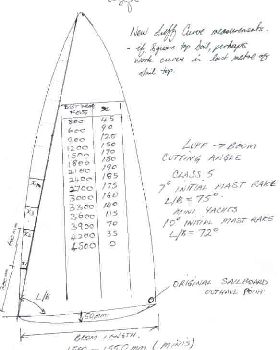 New Luff Curve measurements.
- if square top sail, perhaps
work curve in last metre of
sail top.
300 45
600 90
900 125
1200 150
1500 170
1800 180
2100 190
2400 185
2700 175
3000 160
3300 140
3600 115
3900 70
4200 35
4500 0
LUFF → BOOM
CUTTING ANGLE
CLASS 5
7° INITIAL MAST RAKE
L/B = 75°
MINI YACHTS
10° INITIAL MAST RAKE
L/B = 72°
ORIGINAL SAILBOARD
OUTHAUL POINT
L/B
50mm
BOOM LENGTH.
1550mm (MINIS)